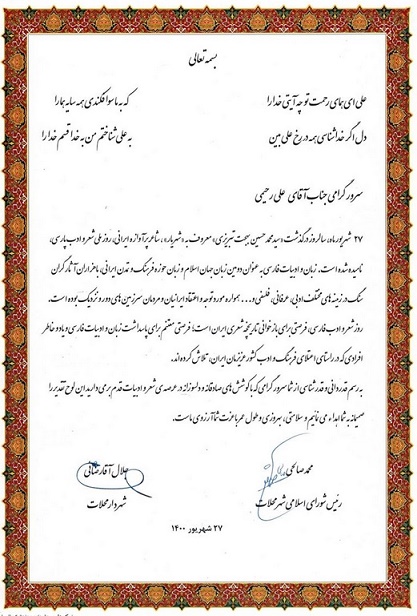 بسمه تعالی
علی ای همای رحمت تو چه آیتی خدا را
که به ماسوا فکندی همه سایه هما را
دل اگر خداشناسی همه در رخ علی بین
به علی شناختم من به خدا قسم خدا را
سرور گرامی جناب آقای علی رحیمی
۲۷ شهریور ماه، سالروز درگذشت «سید محمد حسین بهجت تبریزی» معروف به «شهریار»، شاعر پرآوازه ایرانی، روز ملی شعر و ادب پارسی،
نامیده شده است. زبان و ادبیات فارسی به عنوان دومین زبان جهان اسلام و زبان حوزه فرهنگ و تمدن ایرانی، با هزاران آثار گران
سنگ در زمینه های مختلف ادبی، عرفانی، فلسفی و... همواره مورد توجه و اعتقاد ایرانیان و مردمان سرزمین های دور و نزدیک بوده است.
روز شعر و ادب فارسی، فرصتی برای بازخوانی تاریخچه شعری ایران است؛ فرصتی مغتنم برای پاسداشت زبان و ادبیات فارسی و یاد و خاطر
افرادی که در راستای اعتلای فرهنگ و ادب کشور عزیزمان ایران، تلاش کرده اند.
به رسم قدردانی و قدرشناسی از شما سرور گرامی که با کوشش های صادقانه و دلسوزانه در عرصه ی شعر و ادبیات قدم بر می دارید این لوح تقدیر را
صمیمانه به شما اهداء می نمائیم و سلامتی، بهروزی و طول عمر با عزت شما آرزوی ماست.
محمد صالحی
جلال آقارضائی
رئیس شورای اسلامی شهر محلات
شهردار محلات
۲۷ شهریور ۱۴۰۰